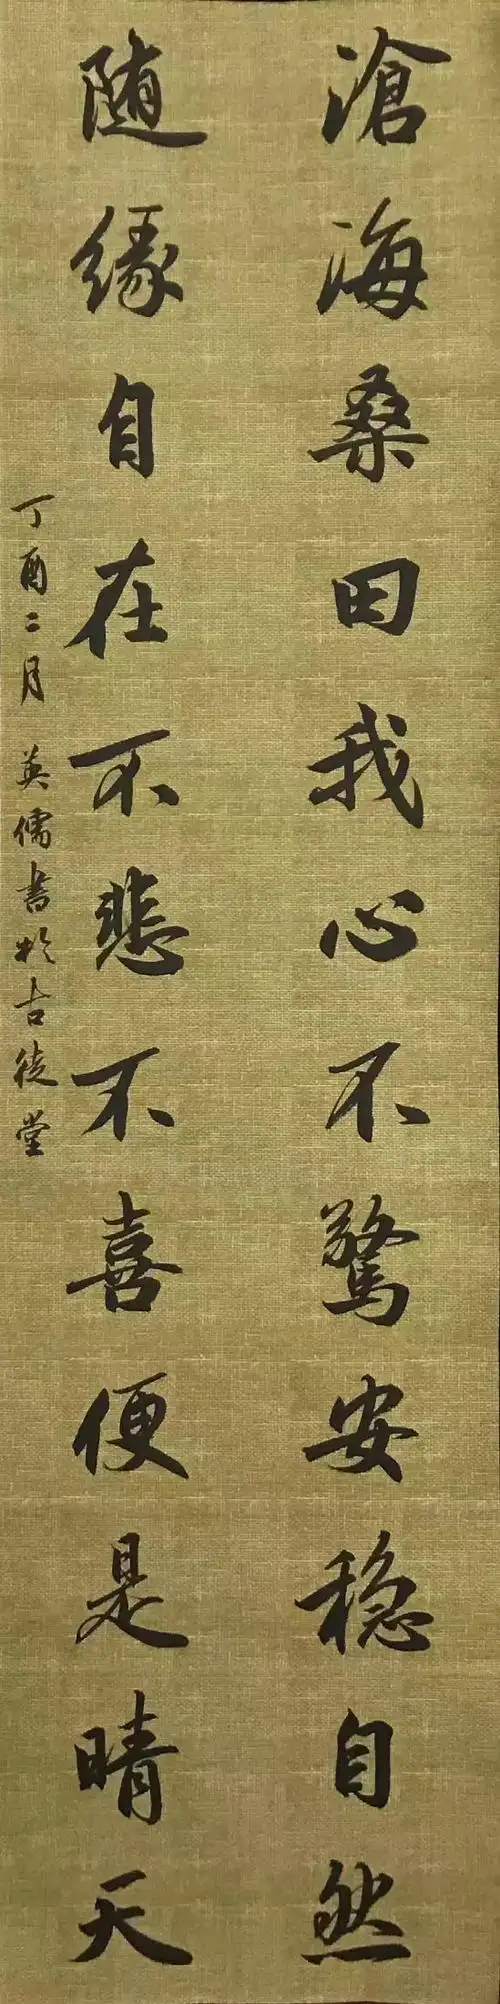 滄海桑田我心不驚安稳自然
随缘自在不悲不喜便是晴天
丁酉二月 英儒書於古徒堂